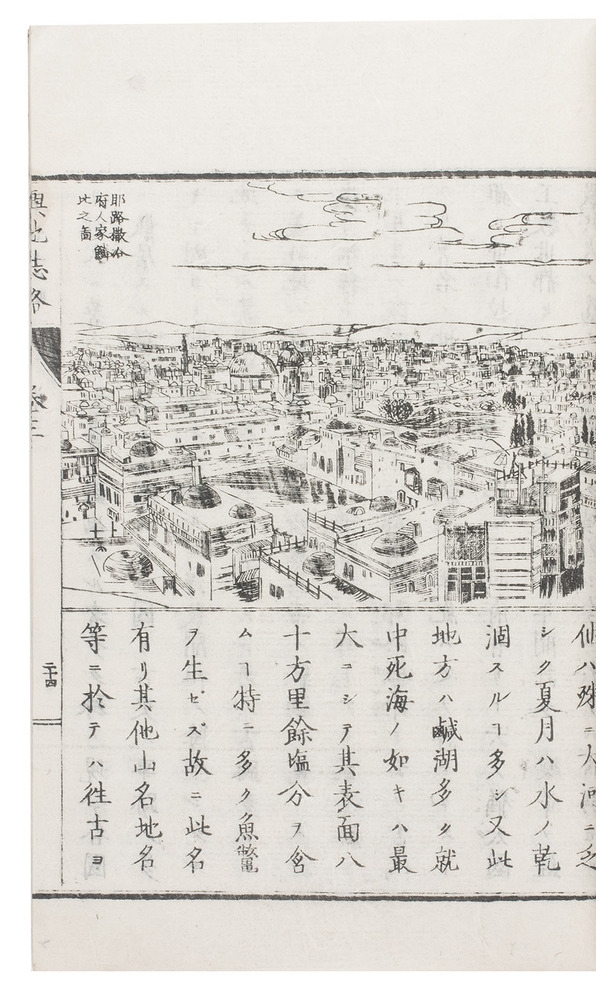 耶路撒冷
府人家鱗
比之圖
ハ殊ニ大河ニ乏
シク夏月ハ水ノ乾
涸スルヿ多シ又此
地方ハ鹹湖多ク就
中死海ノ如キハ最
大ニシテ其表面八
十方里餘塩分ヲ含
ムヿ特ニ多ク魚鼈
ヲ生ゼズ故ニ此名
有リ其他山名地名
等ニ於テハ徃古ヨ
輿地誌略
巻三
二十四